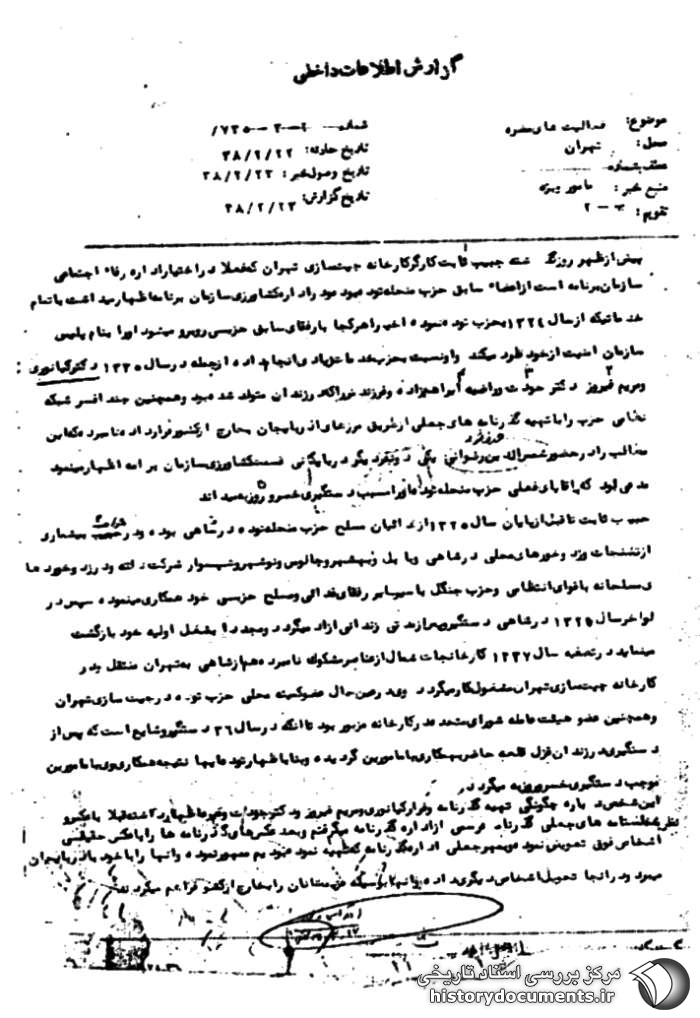 گزارش اطلاعات داخلی
موضوع: فعالیت های مضره
محل: تهران
عطف بشماره
منبع خبر: مامور ویژه
تقویم: ب - ۲
شماره
تاریخ حادثه: ۳۸/۲/۲۲
تاریخ وصول خبر: ۳۸/۲/۲۳
تاریخ گزارش: ۳۸/۲/۲۳
پیش از ظهر روز گذشته حبیب ثابت کارگر کارخانه چیت سازی تهران که فعلا در اختیار اداره رفاه اجتماعی
سازمان برنامه است از اعضاء سابق حزب منحله توده بود در اداره کشاورزی سازمان برنامه اظهار میداشت با تمام
خدماتیکه از سال ۱۳۲۴ بحزب توده نموده اخیرا هر کجا با رفقای سابق حزبی روبرو میشود او را بنام پلیس
سازمان امنیت از خود طرد میکند و او نسبت بحزب خدمات زیادی انجام داده از جمله در سال ۱۳۳۵ دکتر کیانوری
و مریم فیروز دکتر جودت و راضیه ابراهیم زاده و فرزند خود که در زندان متولد شده بود و همچنین چند افسر شبکه
نظامی حزب را با تهیه گذرنامه های جعلی از طریق مرزهای آذربایجان بخارج از کشور فرار داده نامبرده که این
مطالب را در حضور یکی دو نفر دیگر در بایگانی قسمت کشاورزی سازمان برنامه اظهار مینمود
مدعی بود که رفقای فعلی حزب منحله توده او را مسبب دستگیری خسرو روزبه میدانند
حبیب ثابت تا قبل از پایان سال ۱۳۲۵ از فدائیان مسلح حزب منحله توده در شاهی بوده و در بیشماری
از تشنجات و زد و خوردهای محلی در شاهی و بابل و بهشهر و چالوس و نوشهر و شهسوار شرکت داشته و در زد و خوردها
ی مسلحانه با قوای انتظامی و حزب جنگل با سایر رفقای فدائی و مسلح حزبی خود همکاری مینموده سپس در
اواخر سال ۱۳۲۵ در شاهی دستگیر و پس از مدتی زندانی آزاد میگردد و مجددا بشغل اولیه خود بازگشت
مینماید در تصفیه سال ۱۳۲۷ کارخانجات شمال از عناصر مشکوک نامبرده هم از شاهی به تهران منتقل و در
کارخانه چیت سازی تهران مشغول کار میگردد وی در عین حال عضو کمیته محلی حزب توده در چیت سازی تهران
و همچنین عضو هیئت عامله شورای متحده در کارخانه مزبور بود تا آنکه در سال ۳۶ دستگیر و شایع است که پس از
دستگیری در زندان قزل قلعه حاضر بهمکاری با مامورین گردیده و بنا باظهار توده ایها نتیجه همکاری وی با مامورین
موجب دستگیری خسرو روزبه میگردد
این شخص در باره چگونگی تهیه گذرنامه و فرار کیانوری و مریم فیروز و دکتر جودت و غیره اظهار داشته قبلا با عکس و
شناسنامه های جعلی گذرنامه مرسی از اداره گذرنامه میگرفتم و بعد عکس های گذرنامه ها را با عکس حقیقی
اشخاص فوق تعویض نموده و بمهر جعلی اداره گذرنامه که تهیه نموده بودیم ممهور نموده و آنها را با خود بآذربایجان
میبرد و در آنجا تحویل اشخاص دیگری داده و آنها بوسیله دوستانشان را بخارج از کشور فراهم میکردند
مرکز بررسی اسناد تاریخی
historydocuments.ir